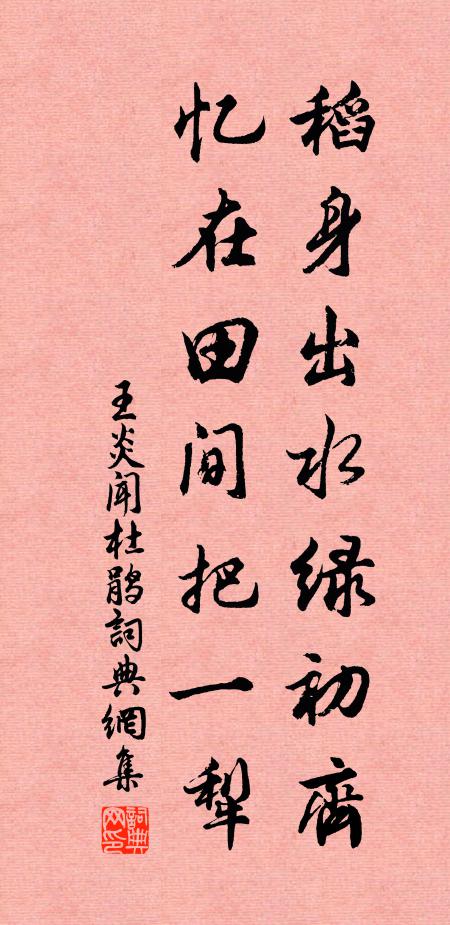 稻身出水绿初齊
忆在田间把一犁
王炎闻杜鹃詞典網集
詞典网印